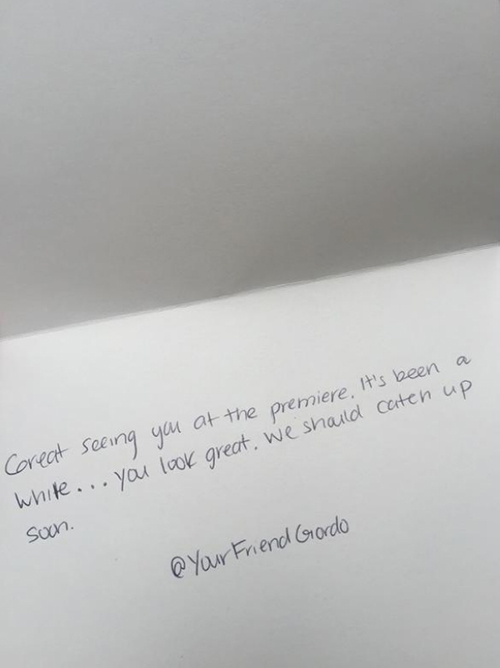 Great seeing you at the premiere. It's been a
while... you look great. We should catch up
soon.
@YourFriendGordo